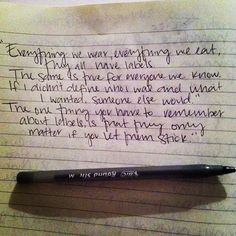 "Everything we wear, everything we eat,
they all have labels.
The same is true for everyone we know.
If I didn't define who I was and what
I wanted, someone else would."
The one thing you have to remember
about labels, is that they only
matter if you let them stick."
BIC Round Stic M